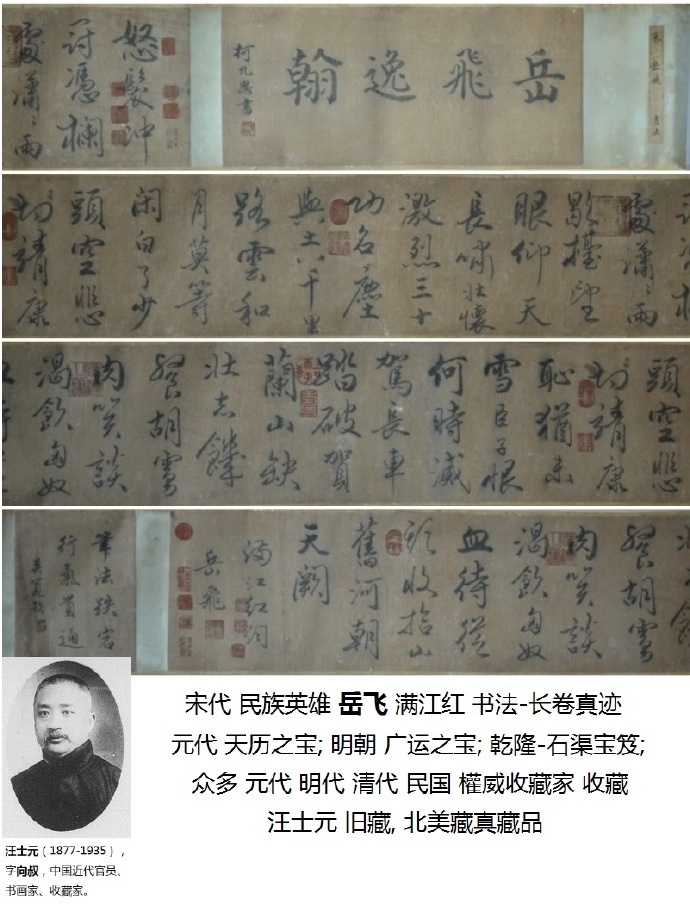 岳飛逸翰
柯九思書
怒髮冲
冠憑欄
處瀟〻雨
處瀟〻雨
歇擡望
眼仰天
長嘯壯懷
激烈三十
功名塵
與土八千里
路雲和
月莫等
閑白了少
頭空悲
切靖康
頭空悲
切靖康
恥猶未
雪臣子恨
何時滅
駕長車
踏破賀
蘭山缺
壯志饑
餐胡虜
肉笑談
渴飲匈奴
餐胡虜
肉笑談
渴飲匈奴
血待從
頭收拾山
舊河朝
天闕
滿江紅詞
岳飛
筆法跌宕
行氣貫通
宋代 民族英雄 岳飞 满江红 书法-长卷真迹
元代 天历之宝; 明朝 广运之宝; 乾隆-石渠宝笈;
众多 元代 明代 清代 民国 權威收藏家 收藏
汪士元 旧藏, 北美藏真藏品
汪士元（1877-1935），
字向叔，中国近代官员、
书画家、收藏家。